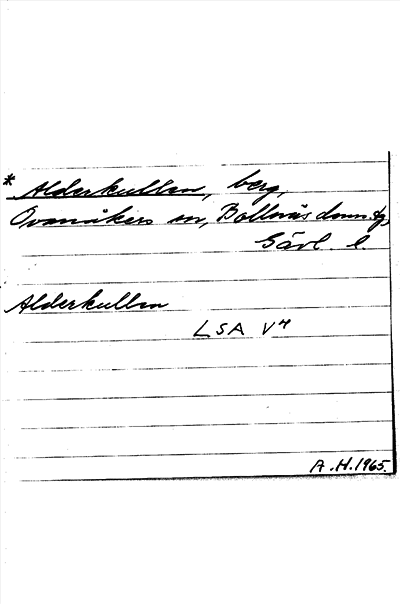 * Alderkullen, berg,
Ovanåkers sn, Bollnäs doms.tg,
Gävl. l.
Alderkullen
LSA V4
A.H. 1965.